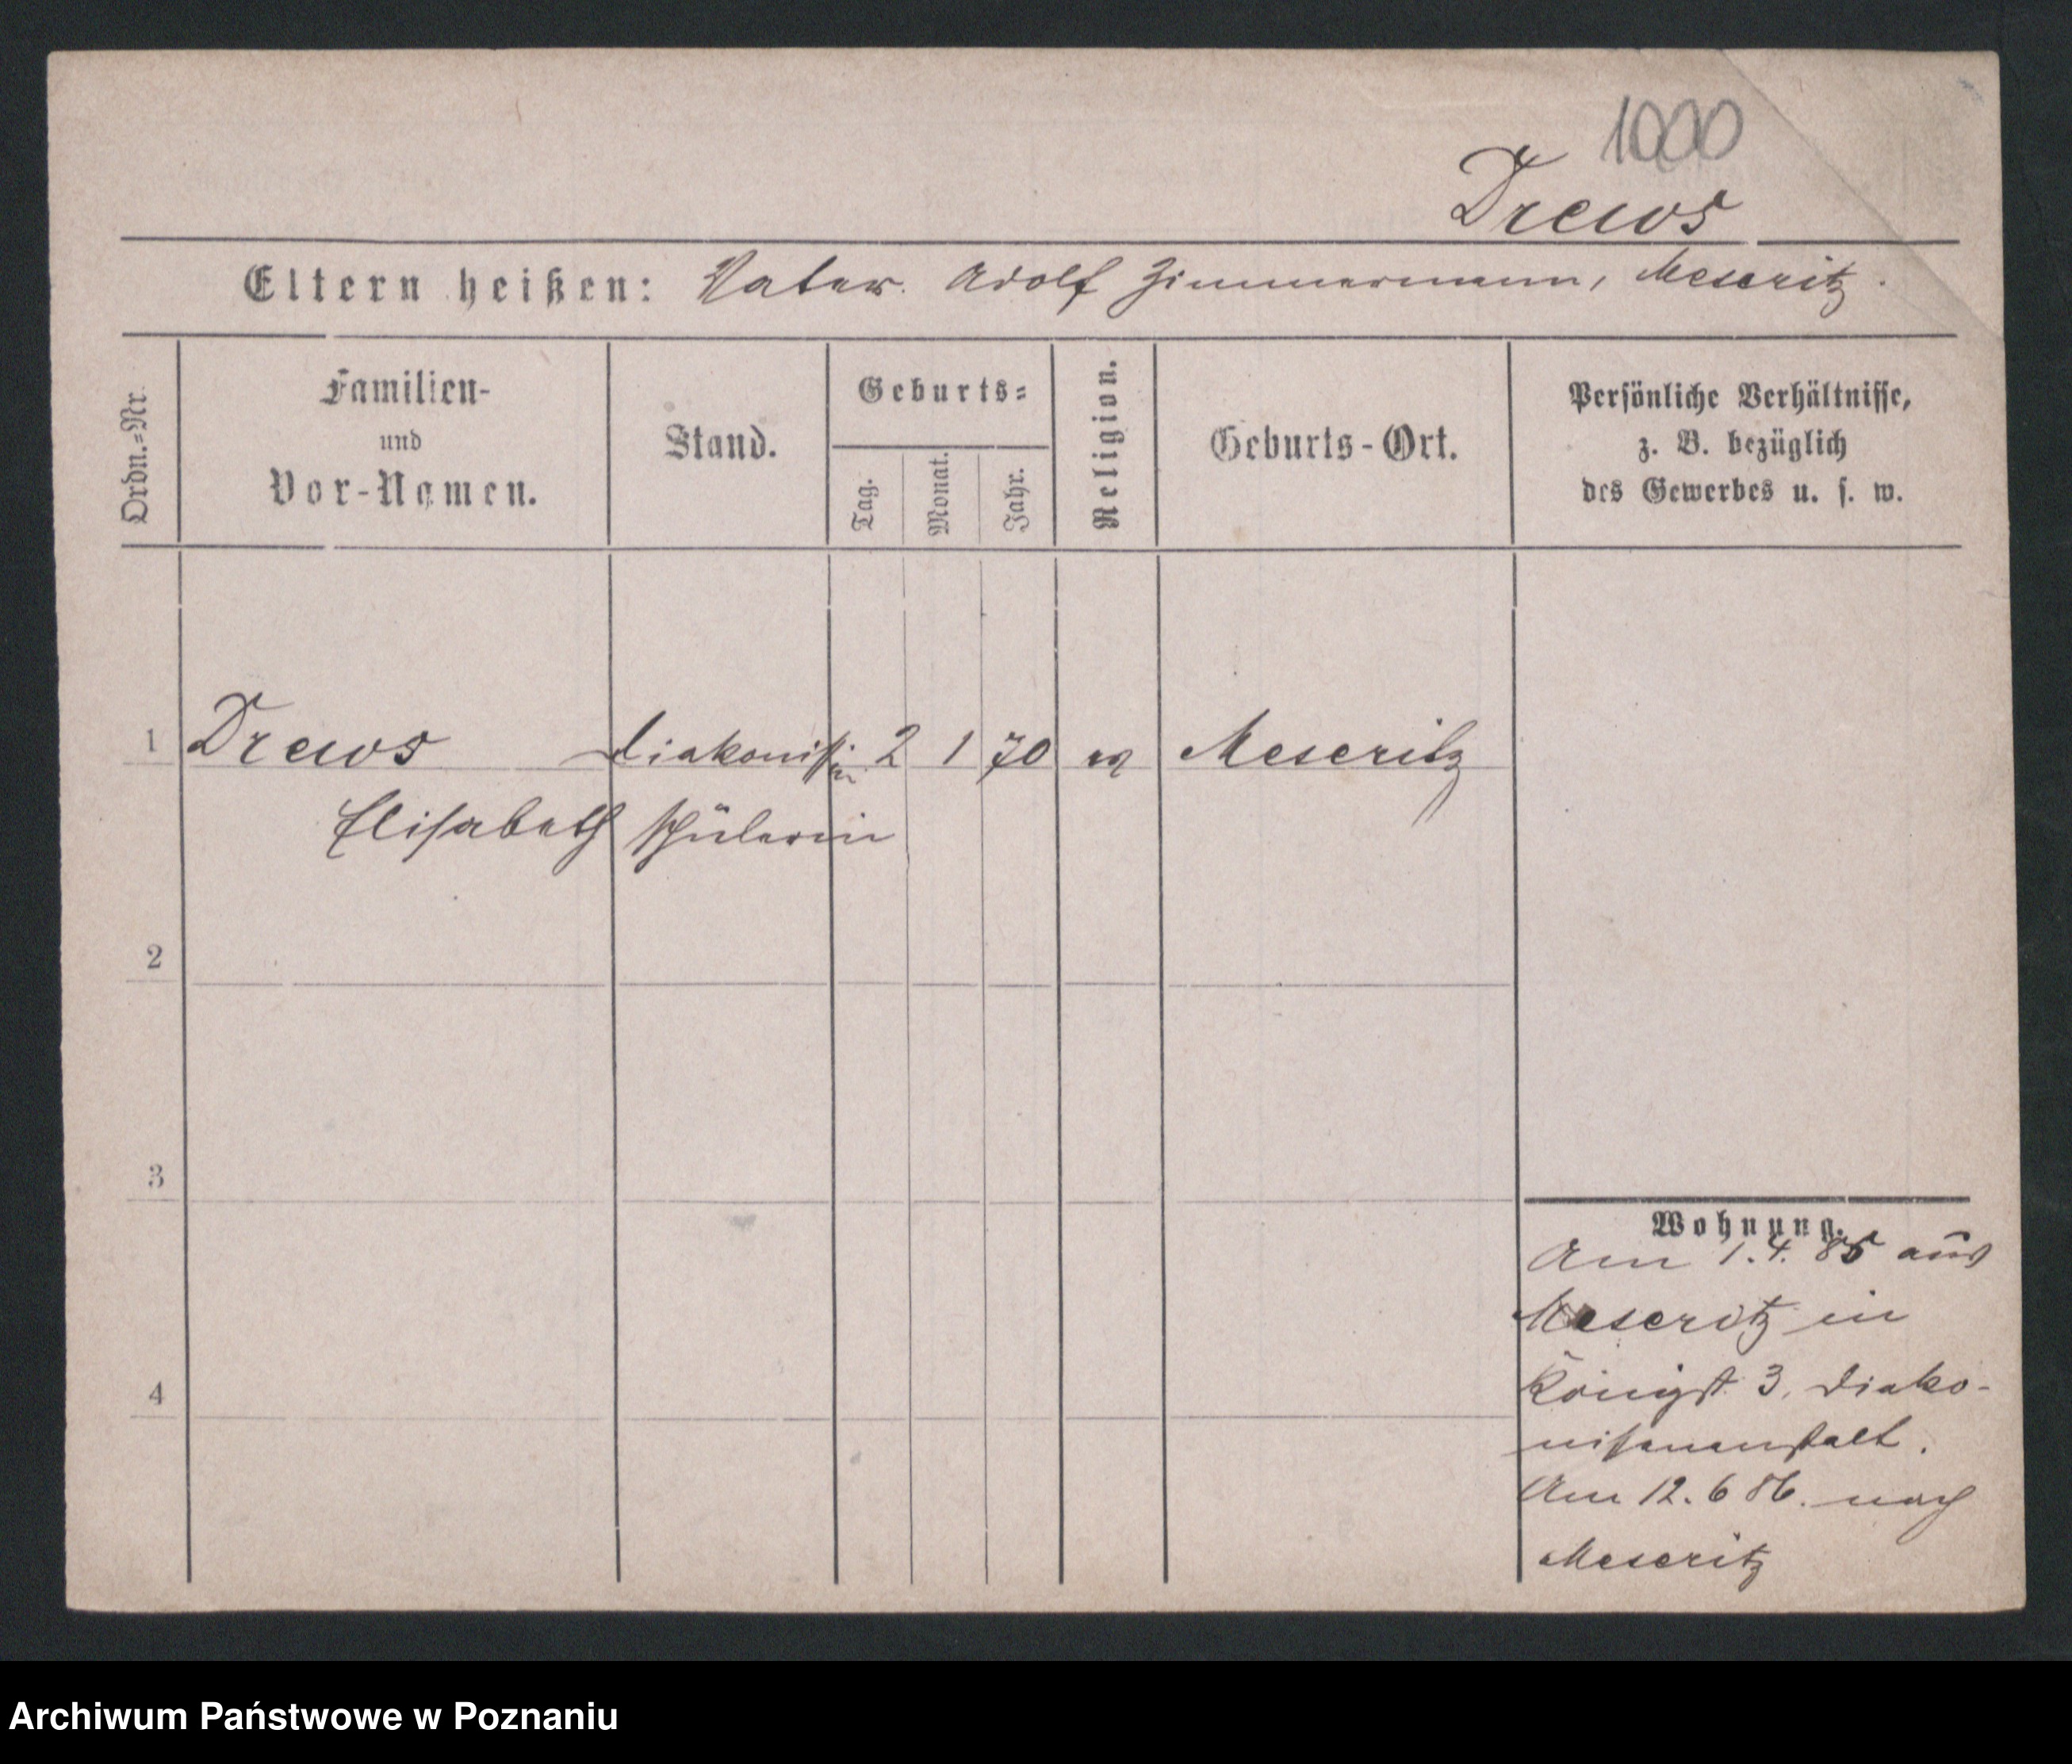 1000
Drews
Eltern heißen: Vater. Adolf Zimmermann, Meseritz.
Ordn.=Nr.
Familien-
und
Vor-Namen.
Stand.
Geburts=
Tag.
Monat.
Jahr.
Religion.
Geburts-Ort.
Persönliche Verhältnisse,
z. B. bezüglich
des Gewerbes u. s. w.
1 Drews Diakonissin 2 1 70 ev Meseritz
Elisabeth schülerin
2
3
4
Wohnung.
Am 1.4.85 aus
Meseritz in
Königst. 3. Diako-
nissenanstalt.
Am 12.6 86. nach
Meseritz
Archiwum Państwowe w Poznaniu